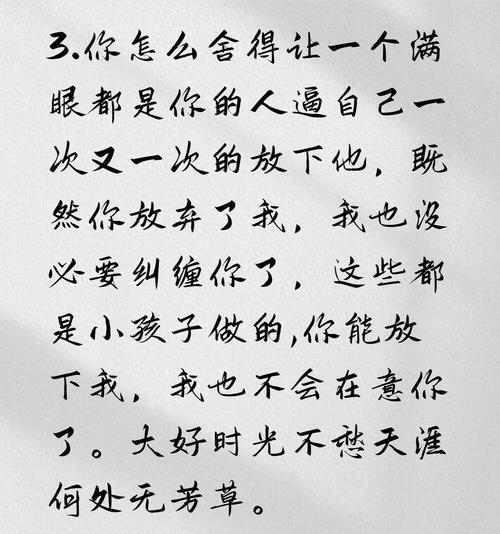 3.你怎么舍得让一个满
眼都是你的人逼自己一
次又一次的放下他，既
然你放弃了我，我也没
必要纠缠你了，这些都
是小孩子做的,你能放
下我，我也不会在意你
了。大好时光不愁天涯
何处无芳草。